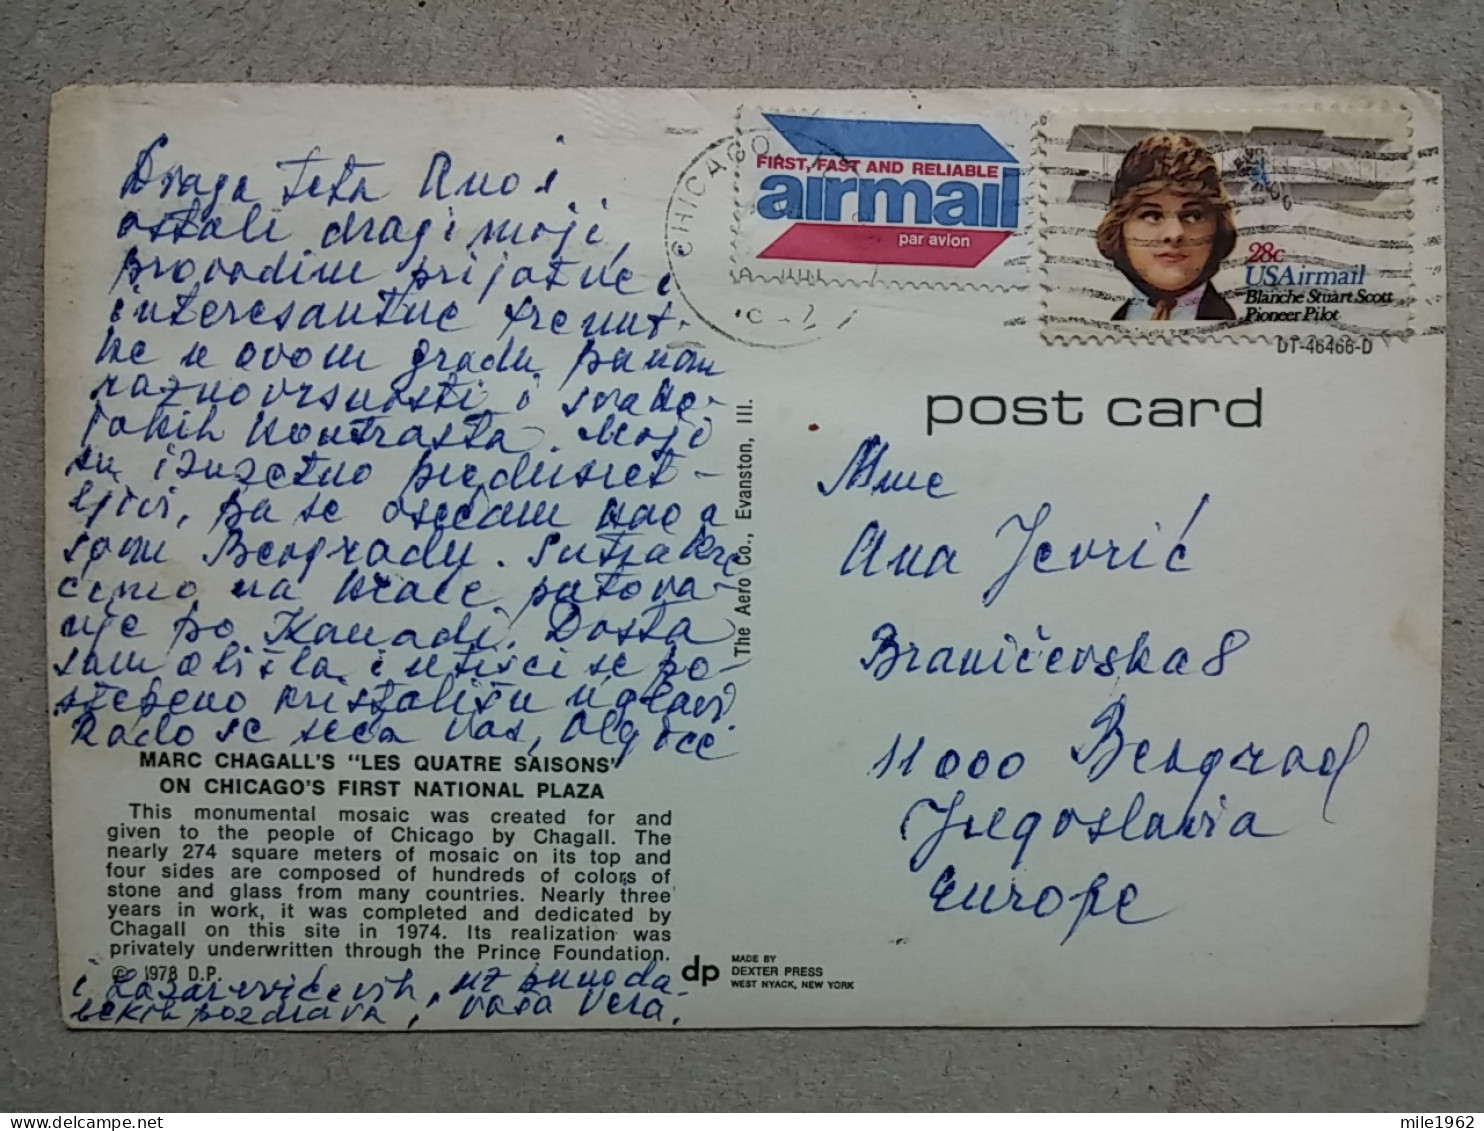 Draga teta Ano i
ostali dragi moji,
provodim prijatne i
interesantne trenut-
ke u ovom gradu punom
raznovrsnosti i svako-
jakih kontrasta. Moji
su izuzetno predusret-
ljivi, pa se osećam kao u
svom Beogradu. Sutra kre
ćemo na kraće putova-
nje po Kanadi. Dosta
sam obišla i utisci se po-
stepeno kristališu u glavi.
Rado se seća vas, Olgice
i Lazarevićevih, uz puno da-
lekih pozdrava, vaša Vera.
MARC CHAGALL'S "LES QUATRE SAISONS"
ON CHICAGO'S FIRST NATIONAL PLAZA
This monumental mosaic was created for and
given to the people of Chicago by Chagall. The
nearly 274 square meters of mosaic on its top and
four sides are composed of hundreds of colors of
stone and glass from many countries. Nearly three
years in work, it was completed and dedicated by
Chagall on this site in 1974. Its realization was
privately underwritten through the Prince Foundation.
© 1978 D.P.
The Aero Co., Evanston, Ill.
dp
MADE BY
DEXTER PRESS
WEST NYACK, NEW YORK
CHICAGO
FIRST, FAST AND RELIABLE
airmail
par avion
28c
USAirmail
Blanche Stuart Scott
Pioneer Pilot
DT-46466-D
post card
Mme
Ana Jevrić
Braničevska 8
11000 Beograd
Jugoslavia
Europe
mile1962